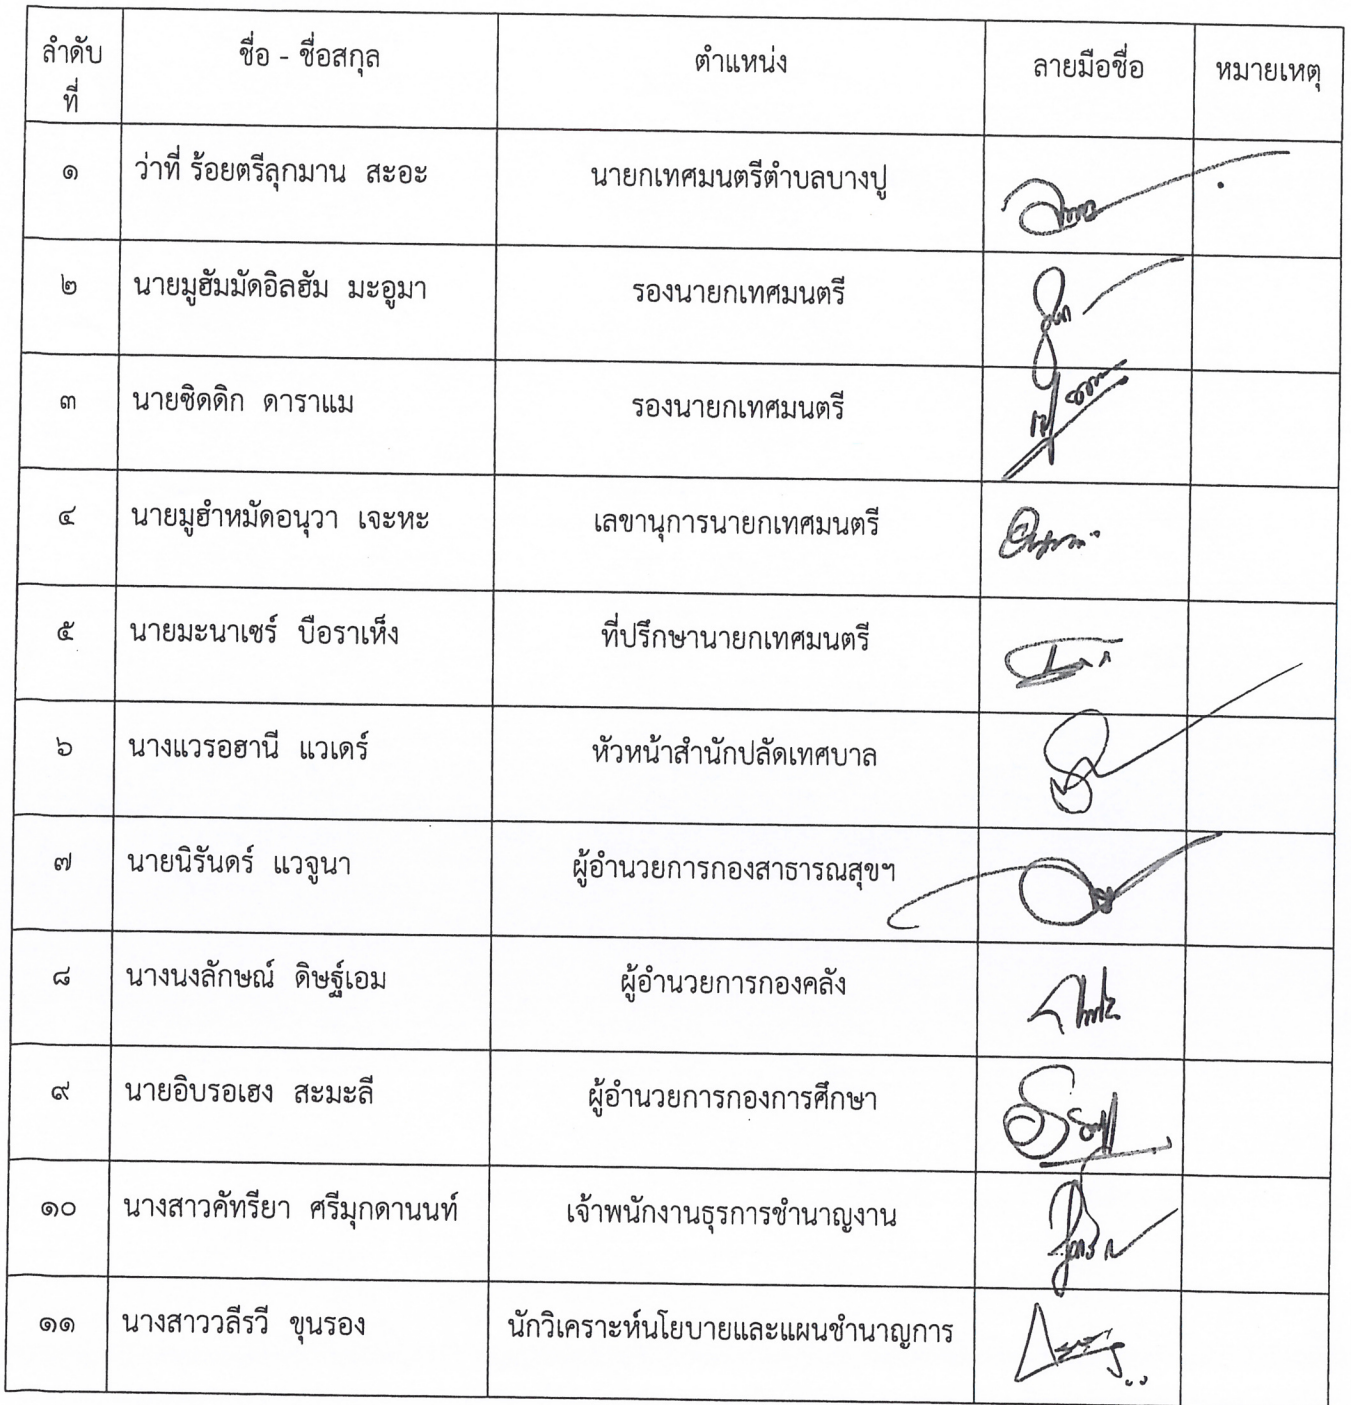 ลำดับ ชื่อ - ชื่อสกุล ตำแหน่ง ลายมือชื่อ หมายเหตุ
ที่
๑ ว่าที่ ร้อยตรีลุกมาน สะอะ นายกเทศมนตรีตำบลบางปู
๒ นายมูฮัมมัดอิลฮัม มะอูมา รองนายกเทศมนตรี
๓ นายซิดดิก ดาราแม รองนายกเทศมนตรี
๔ นายมูฮำหมัดอนุวา เจะหะ เลขานุการนายกเทศมนตรี
๕ นายมะนาเซร์ บือราเห็ง ที่ปรึกษานายกเทศมนตรี
๖ นางแวรอฮานี แวเดร์ หัวหน้าสำนักปลัดเทศบาล
๗ นายนิรันดร์ แวจูนา ผู้อำนวยการกองสาธารณสุขฯ
๘ นางนงลักษณ์ ดิษฐ์เอม ผู้อำนวยการกองคลัง
๙ นายอิบรอเฮง สะมะลี ผู้อำนวยการกองการศึกษา
๑๐ นางสาวคัทรียา ศรีมุกดานนท์ เจ้าพนักงานธุรการชำนาญงาน
๑๑ นางสาววลีรวี ขุนรอง นักวิเคราะห์นโยบายและแผนชำนาญการ